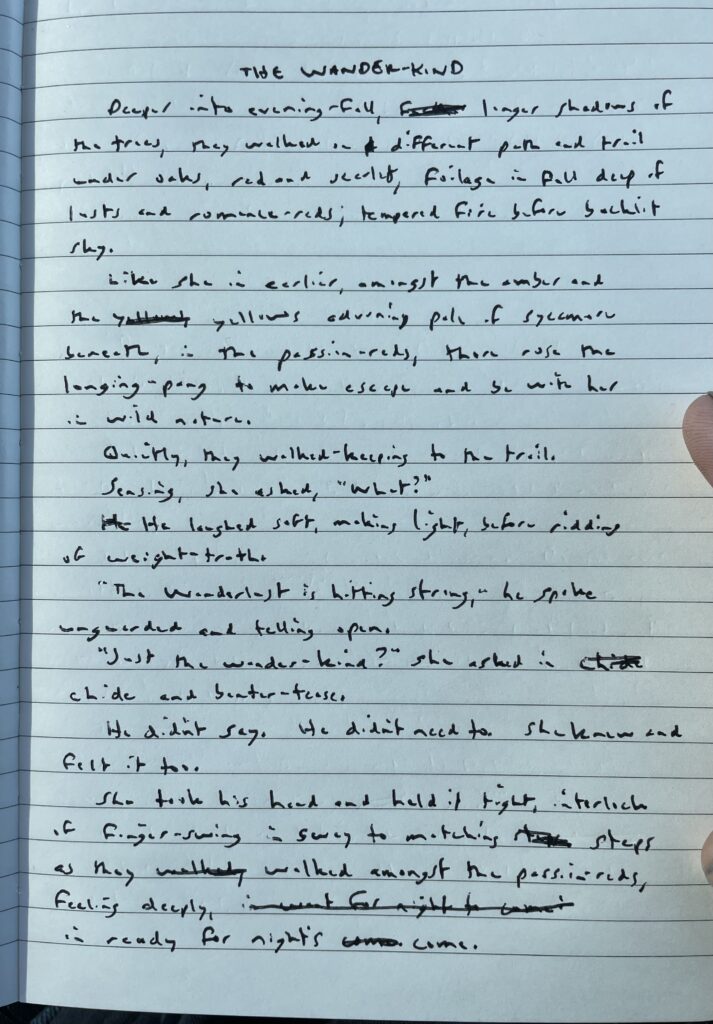 THE WANDER-KIND
Deeper into evening-fall, longer shadows of
the trees, they walked on different path and trail
under oaks, red and scarlet, foilage in fall deep of
lusts and romance-reds; tempered fire before backlit
sky.
Like she in earlier, amongst the amber and
the yellows adorning pale of sycamore
beneath, in the passion-reds, there rose the
longing-pang to make escape and be with her
in wild nature.
Quietly, they walked-keeping to the trail.
Sensing, she asked, "What?"
He laughed soft, making light, before ridding
of weight-truth.
"The wanderlust is hitting strong," he spoke
unguarded and telling open.
"Just the wander-kind?" she asked in
chide and banter-tease.
He didn't say. He didn't need to. She knew and
felt it too.
She took his hand and held it tight, interlock
of finger-swing in sway to matching steps
as they walked amongst the passion-reds,
feeling deeply, in want for night to come
in ready for night's come.